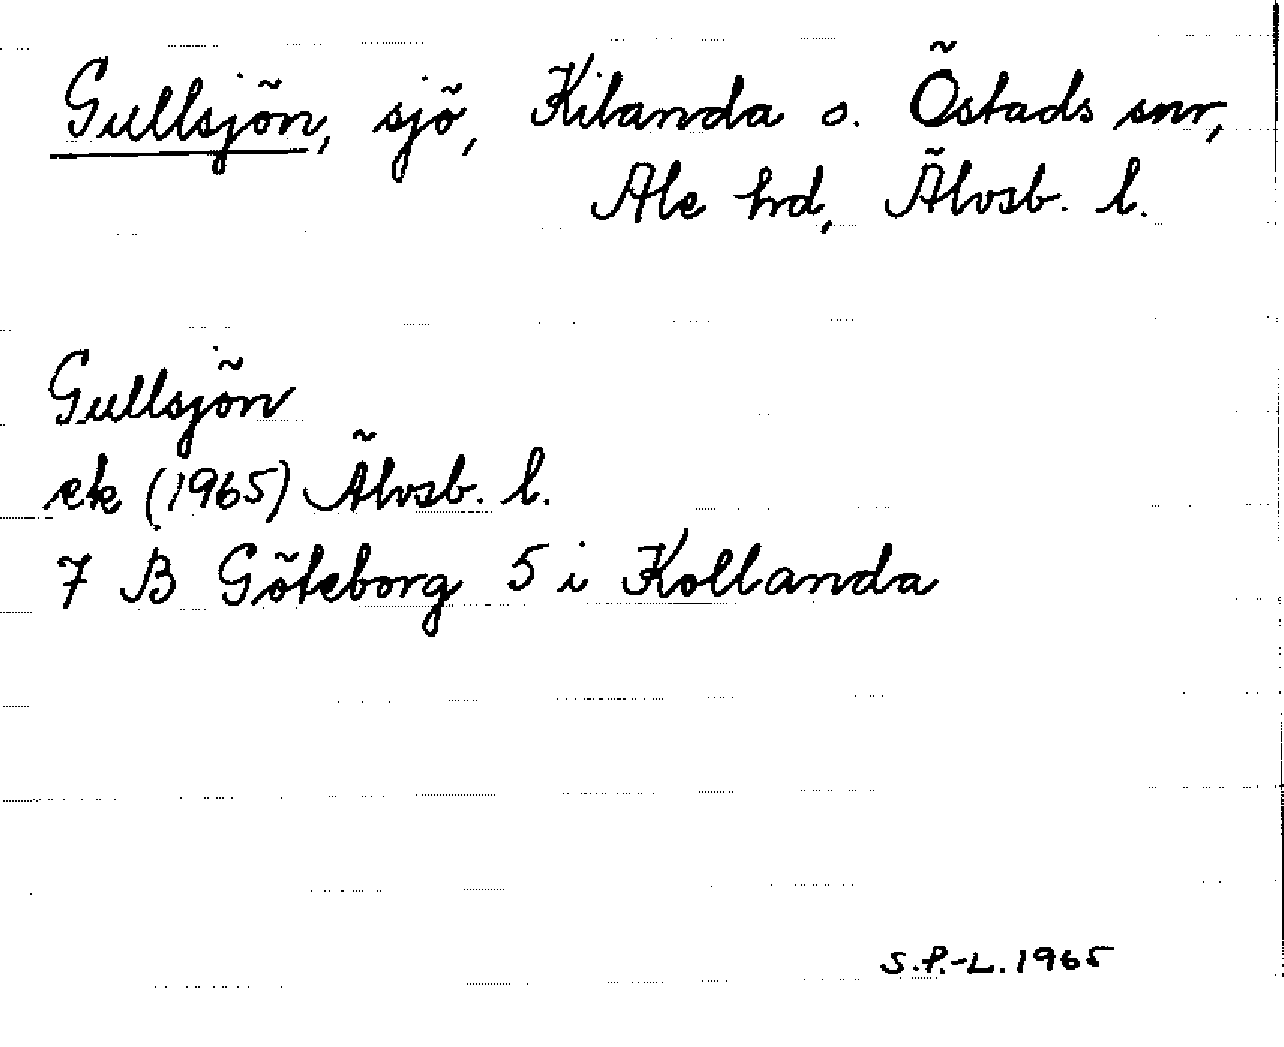 Gullsjön, sjö, Kilanda o. Östads snr,
Ale hrd, Älvsb. l.
Gullsjön
ek (1965) Älvsb. l.
7 B Göteborg 5 i Kollanda
S.P.-L. 1965